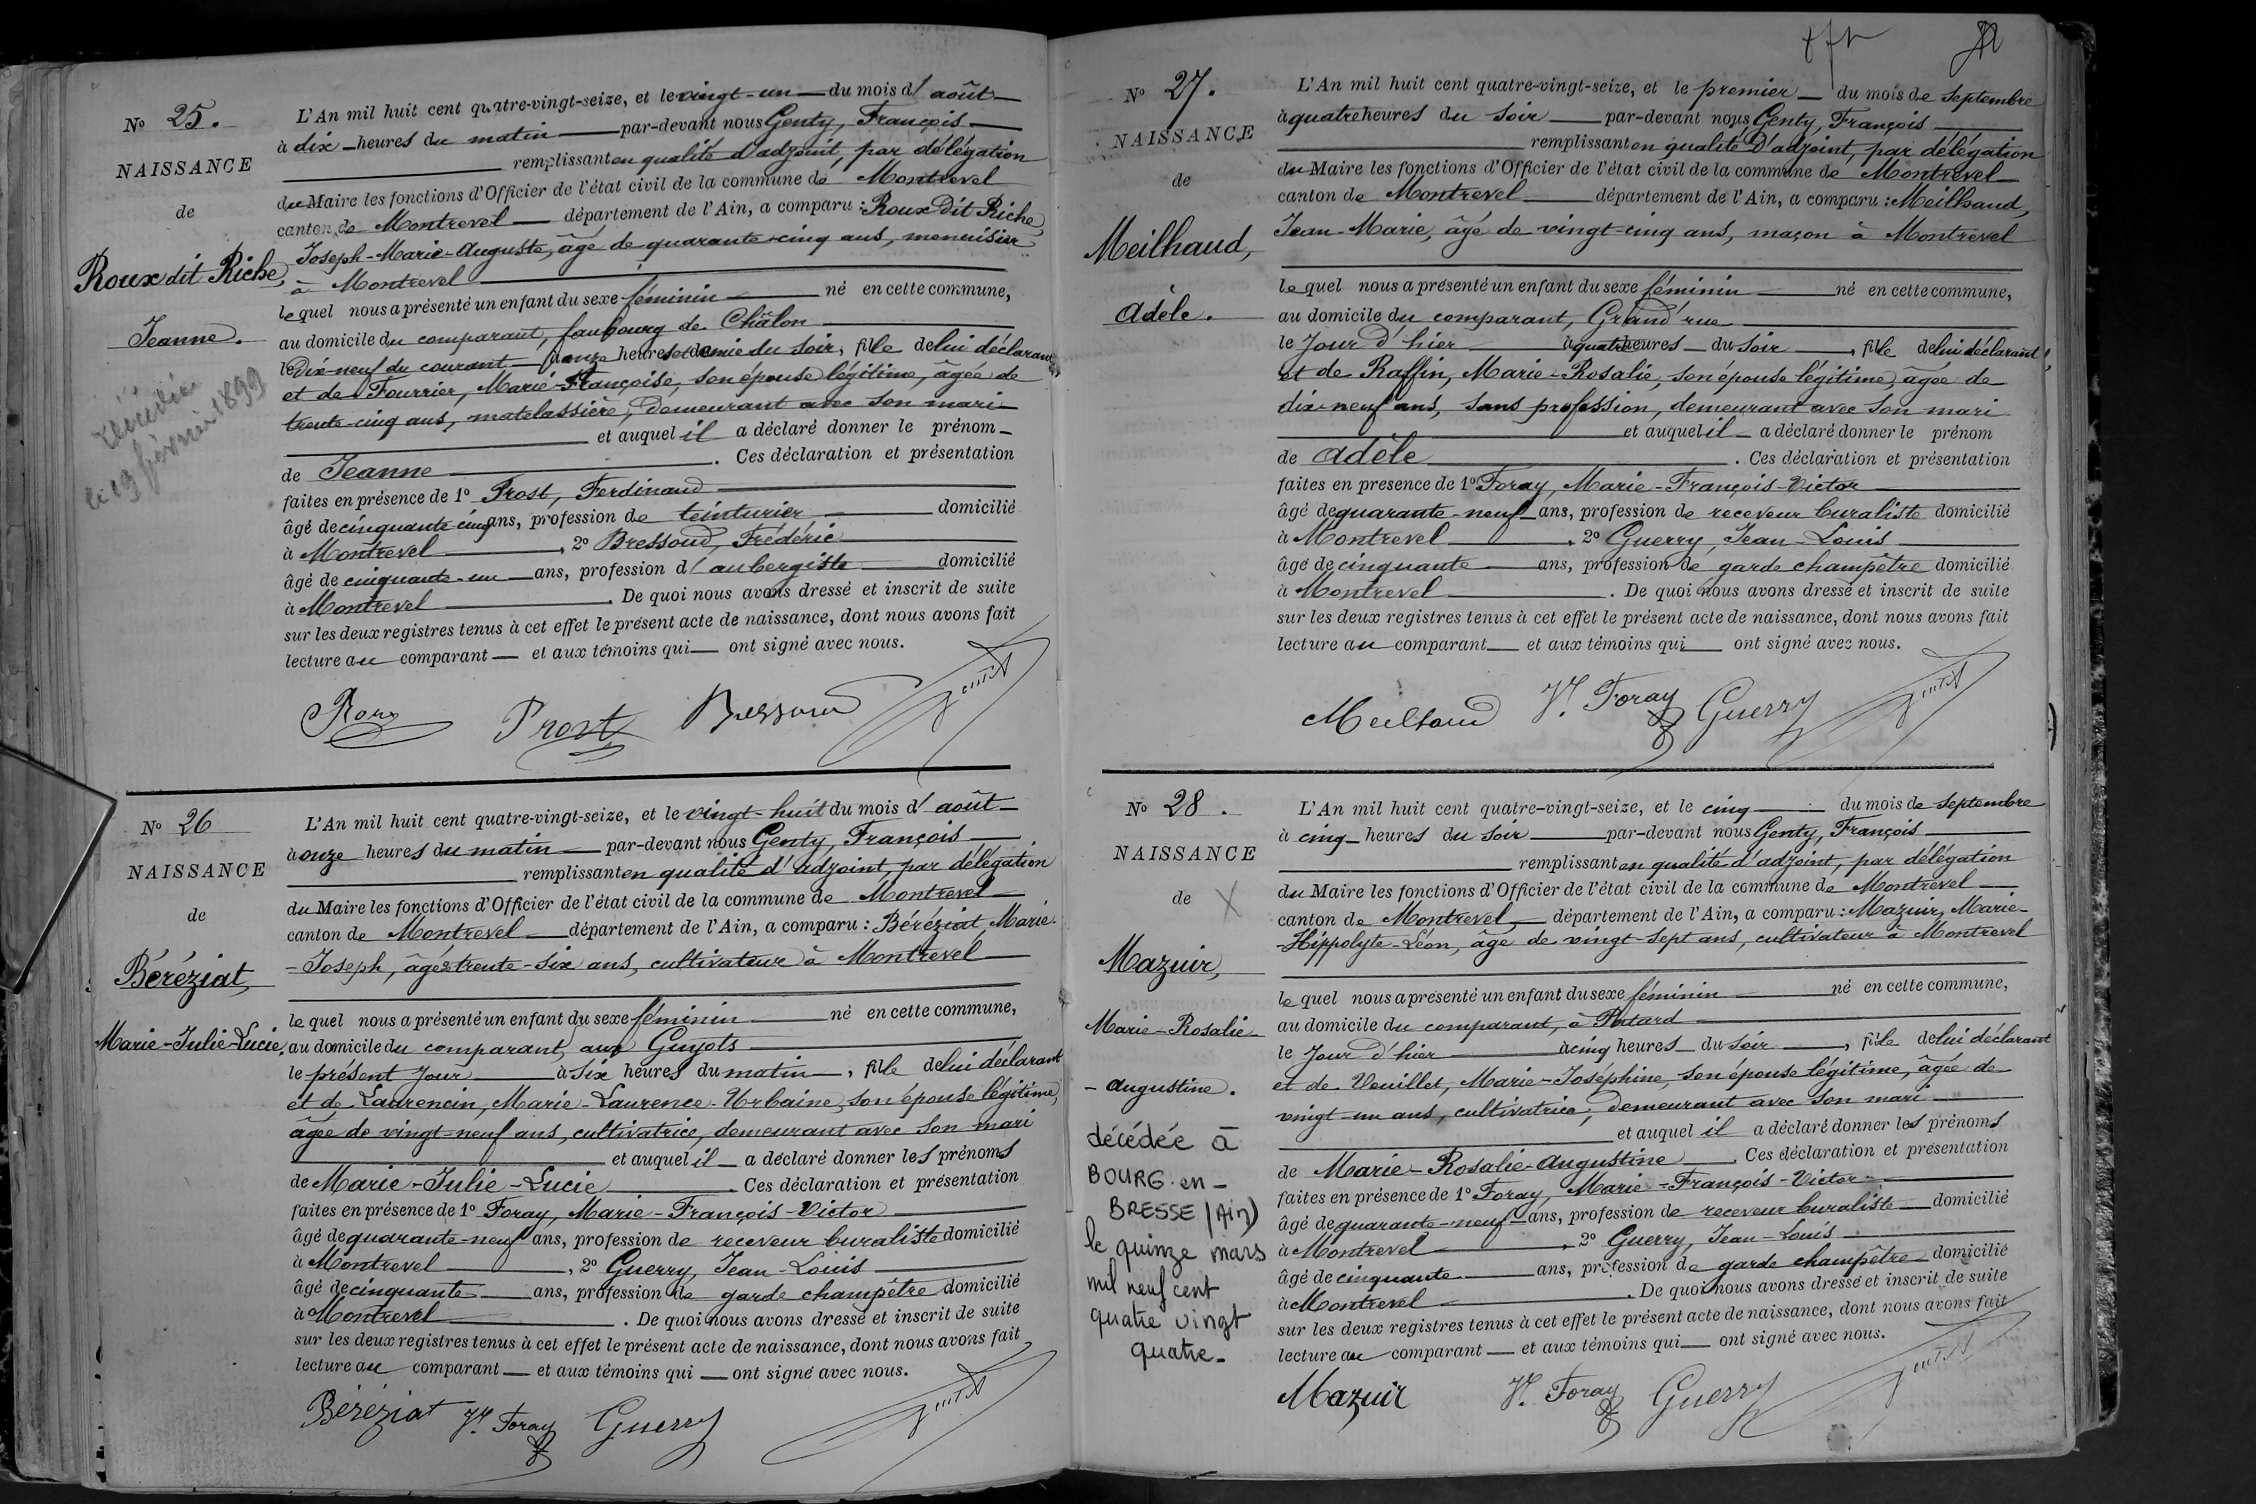 N° 25.
NAISSANCE
de
Roux dit Riche,
Jeanne.
décédée
le 19 février 1899
L'An mil huit cent quatre-vingt-seize, et le vingt-un du mois d'août
à dix heures du matin par-devant nous Genty, François
remplissant en qualité d'adjoint, par délégation
du Maire les fonctions d'Officier de l'état civil de la commune de Montrevel
canton de Montrevel département de l'Ain, a comparu : Roux dit Riche,
Joseph-Marie-Auguste, âgé de quarante-cinq ans, menuisier
à Montrevel
lequel nous a présenté un enfant du sexe féminin né en cette commune,
au domicile du comparant, faubourg de Châlon
le Dix-neuf du courant à onze heures et demie du soir, fille de lui déclarant,
et de Fourrier, Marie-Françoise, son épouse légitime, âgée de
trente-cinq ans, matelassière, demeurant avec son mari
et auquel il a déclaré donner le prénom
de Jeanne. Ces déclaration et présentation
faites en présence de 1° Prost, Ferdinand
âgé de cinquante-cinq ans, profession de teinturier domicilié
à Montrevel, 2° Bressoud, Frédéric
âgé de cinquante-un ans, profession d'aubergiste domicilié
à Montrevel. De quoi nous avons dressé et inscrit de suite
sur les deux registres tenus à cet effet le présent acte de naissance, dont nous avons fait
lecture au comparant et aux témoins qui ont signé avec nous.
Roux Prost Bressoud Genty
N° 26
NAISSANCE
de
Béréziat,
Marie-Julie-Lucie.
L'An mil huit cent quatre-vingt-seize, et le vingt-huit du mois d'août
à onze heures du matin par-devant nous Genty, François
remplissant en qualité d'adjoint, par délégation
du Maire les fonctions d'Officier de l'état civil de la commune de Montrevel
canton de Montrevel département de l'Ain, a comparu : Béréziat, Marie-
-Joseph, âgé de trente-six ans, cultivateur à Montrevel
lequel nous a présenté un enfant du sexe féminin né en cette commune,
au domicile du comparant, aux Guyots
le présent jour à six heures du matin, fille de lui déclarant
et de Laurencin, Marie-Laurence-Urbaine, son épouse légitime,
âgée de vingt-neuf ans, cultivatrice, demeurant avec son mari
et auquel il a déclaré donner les prénoms
de Marie-Julie-Lucie. Ces déclaration et présentation
faites en présence de 1° Foray, Marie-François-Victor
âgé de quarante-neuf ans, profession de receveur buraliste domicilié
à Montrevel, 2° Guerry, Jean-Louis
âgé de cinquante ans, profession de garde champêtre domicilié
à Montrevel. De quoi nous avons dressé et inscrit de suite
sur les deux registres tenus à cet effet le présent acte de naissance, dont nous avons fait
lecture au comparant et aux témoins qui ont signé avec nous.
Béréziat Vr. Foray Guerry Genty
N° 27.
NAISSANCE
de
Meilhaud,
Adèle.
L'An mil huit cent quatre-vingt-seize, et le premier du mois de septembre
à quatre heures du soir par-devant nous Genty, François
remplissant en qualité d'adjoint, par délégation
du Maire les fonctions d'Officier de l'état civil de la commune de Montrevel
canton de Montrevel département de l'Ain, a comparu : Meilhaud,
Jean-Marie, âgé de vingt-cinq ans, maçon à Montrevel
lequel nous a présenté un enfant du sexe féminin né en cette commune,
au domicile du comparant, Grand'rue
le jour d'hier à quatre heures du soir, fille de lui déclarant,
et de Raffin, Marie-Rosalie, son épouse légitime, âgée de
dix-neuf ans, sans profession, demeurant avec son mari
et auquel il a déclaré donner le prénom
de Adèle. Ces déclaration et présentation
faites en présence de 1° Foray, Marie-François-Victor
âgé de quarante-neuf ans, profession de receveur buraliste domicilié
à Montrevel, 2° Guerry, Jean-Louis
âgé de cinquante ans, profession de garde champêtre domicilié
à Montrevel. De quoi nous avons dressé et inscrit de suite
sur les deux registres tenus à cet effet le présent acte de naissance, dont nous avons fait
lecture au comparant et aux témoins qui ont signé avec nous.
Meilhaud Vr. Foray Guerry Genty
N° 28.
NAISSANCE
de X
Mazuir,
Marie-Rosalie-
-Augustine.
décédée à
BOURG-en-
BRESSE (Ain)
le quinze mars
mil neuf cent
quatre vingt
quatre-
L'An mil huit cent quatre-vingt-seize, et le cinq du mois de septembre
à cinq heures du soir par-devant nous Genty, François
remplissant en qualité d'adjoint, par délégation
du Maire les fonctions d'Officier de l'état civil de la commune de Montrevel
canton de Montrevel département de l'Ain, a comparu : Mazuir, Marie-
-Hippolyte-Léon, âgé de vingt-sept ans, cultivateur à Montrevel
lequel nous a présenté un enfant du sexe féminin né en cette commune,
au domicile du comparant, à
le jour d'hier à cinq heures du soir, fille de lui déclarant
et de Veuillet, Marie-Joséphine, son épouse légitime, âgée de
vingt-un ans, cultivatrice, demeurant avec son mari
et auquel il a déclaré donner les prénoms
de Marie-Rosalie-Augustine. Ces déclaration et présentation
faites en présence de 1° Foray, Marie-François-Victor
âgé de quarante-neuf ans, profession de receveur buraliste domicilié
à Montrevel, 2° Guerry, Jean-Louis
âgé de cinquante ans, profession de garde champêtre domicilié
à Montrevel. De quoi nous avons dressé et inscrit de suite
sur les deux registres tenus à cet effet le présent acte de naissance, dont nous avons fait
lecture au comparant et aux témoins qui ont signé avec nous.
Mazuir Vr. Foray Guerry Genty